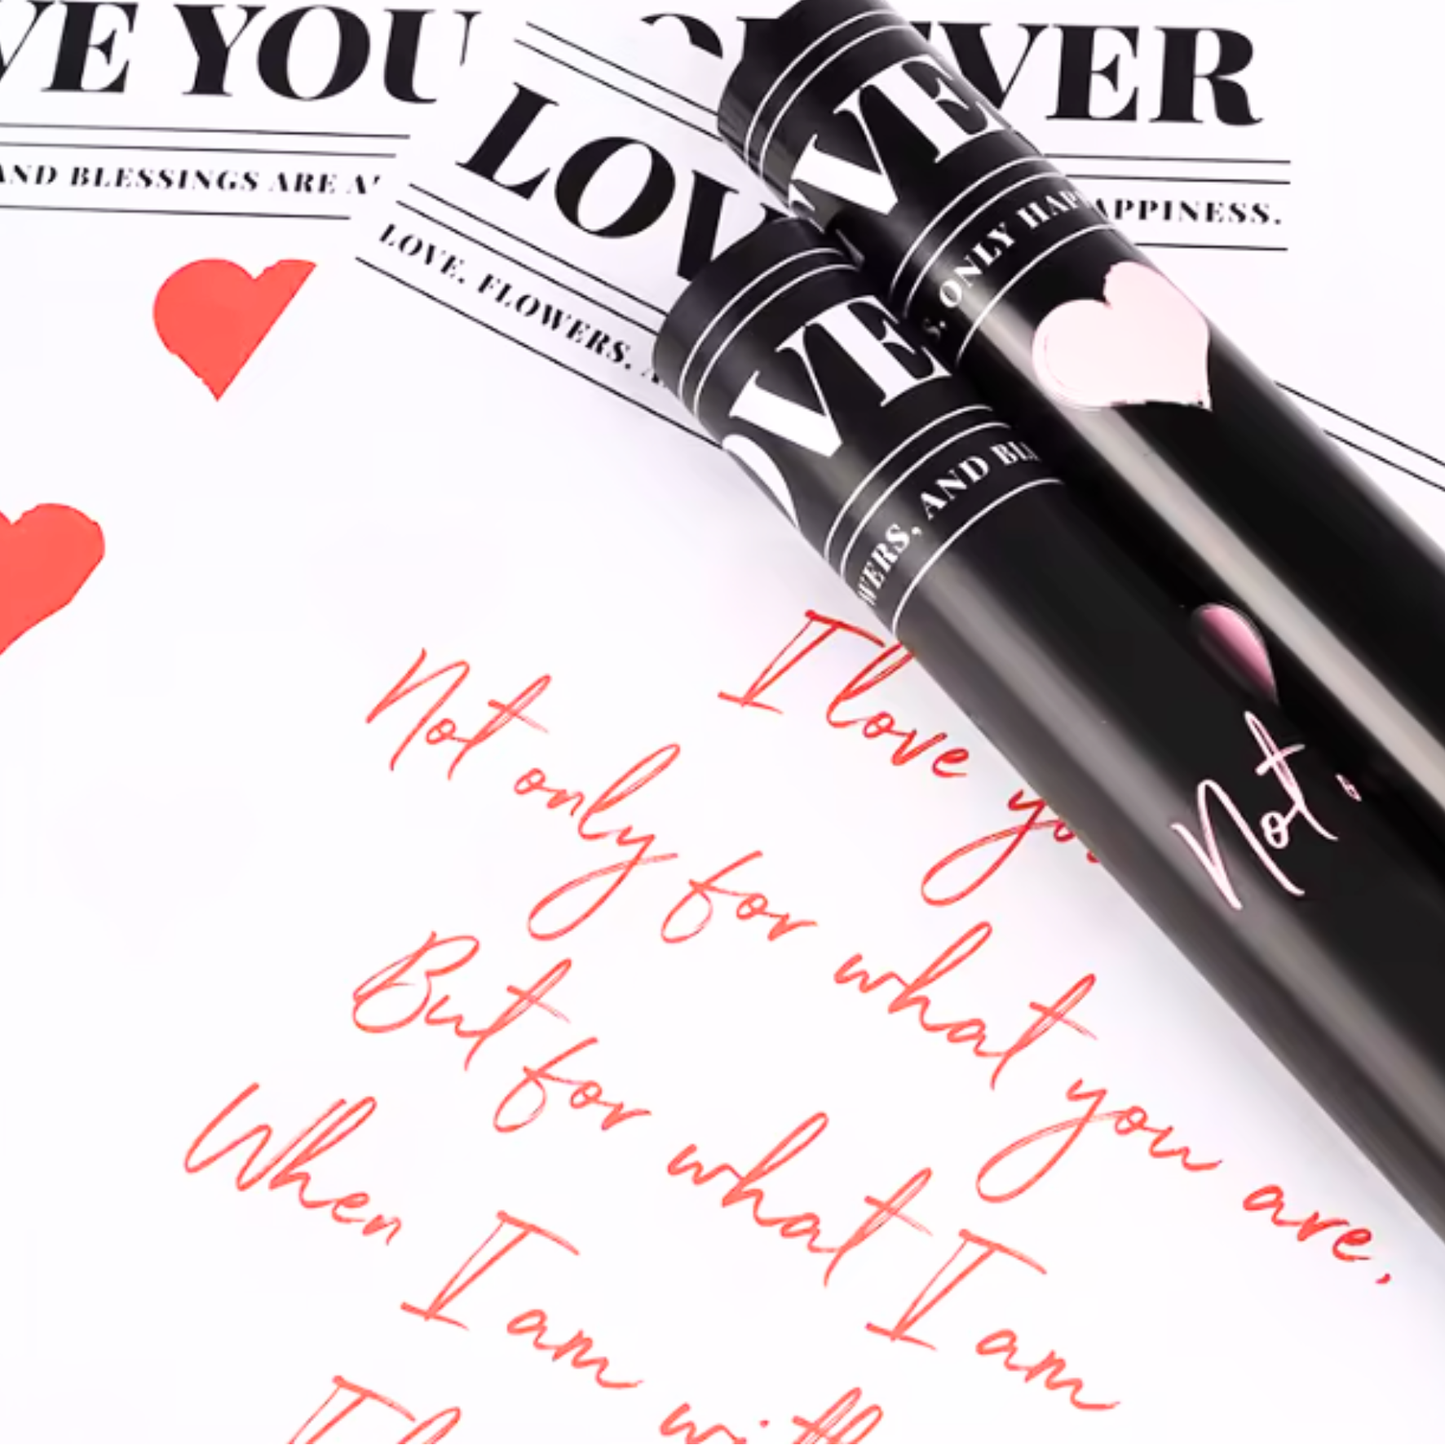 VE YOU
EVER
AND BLESSINGS ARE
APPINESS.
LOV
LOVE. FLOWERS.
OVE
S, ONLY HAP
OVE
WERS, AND BL
I love yo
Not only for what you are.
But for what I am
When I am with
I l
Not